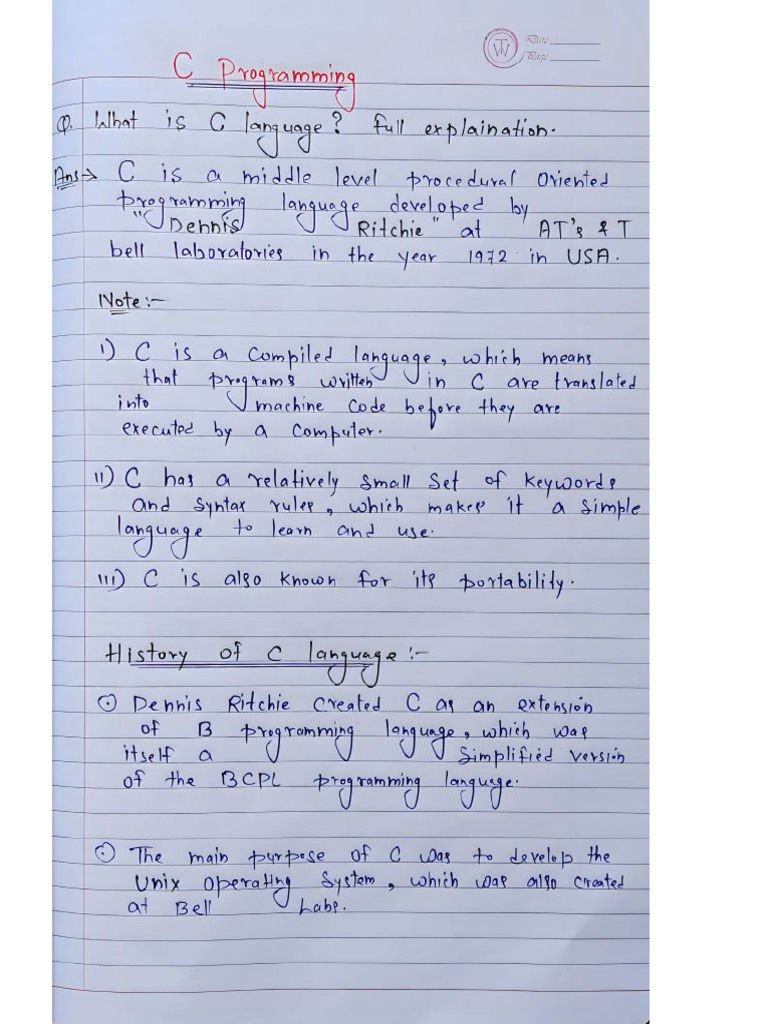 TW
Date
Page
C Programming
Q. What is C language? full explaination.
Ans→ C is a middle level procedural oriented
programming language developed by
"Dennis Ritchie" at AT's & T
bell laboratories in the year 1972 in USA.
Note:-
i) C is a compiled language, which means
that programs written in C are translated
into machine code before they are
executed by a computer.
ii) C has a relatively small set of keywords
and syntax rules, which makes it a simple
language to learn and use.
iii) C is also known for its portability.
History of C language:-
Dennis Ritchie created C as an extension
of B programming language, which was
itself a simplified version
of the BCPL programming language.
The main purpose of C was to develop the
Unix operating system, which was also created
at Bell Labs.